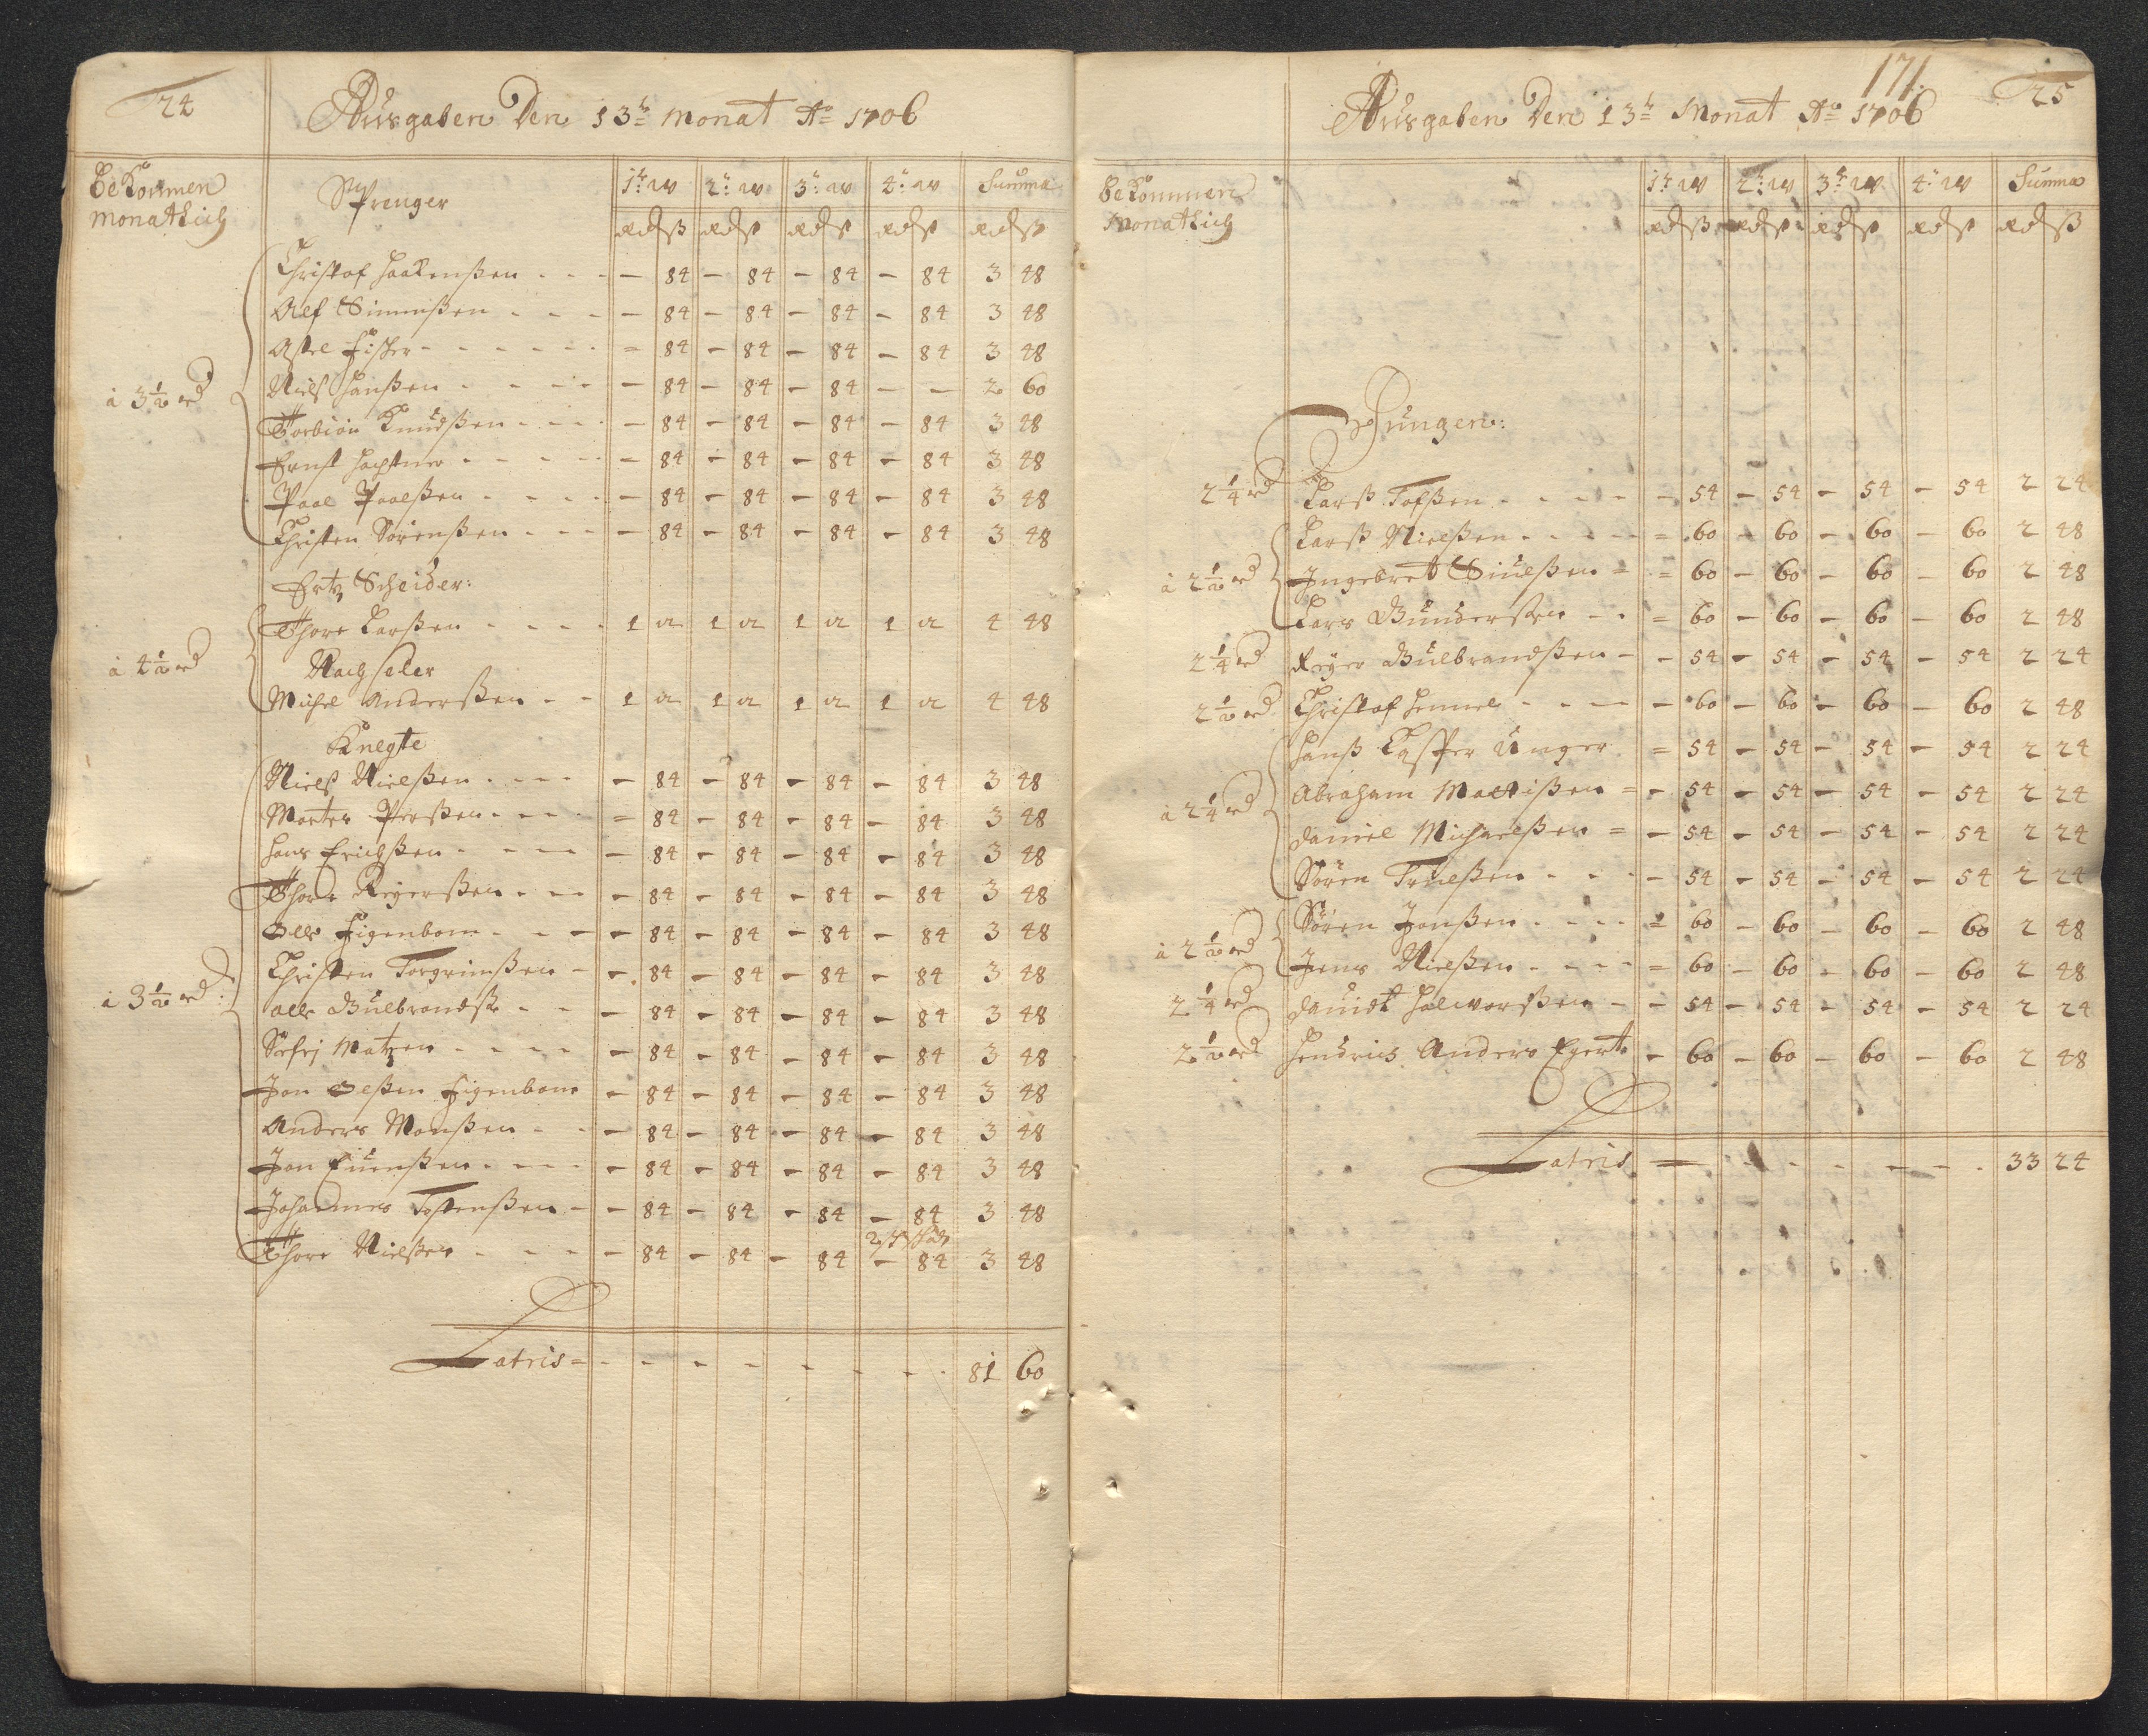 24
Ausgaben Den 13ten Monat Ao 1706
Bekommen monatlich | Sprenger | 1te W | 2te W | 3te W | 4te W | Summa
rd ß | rd ß | rd ß | rd ß | rd ß
Christof Haakenßen - - - | - 84 | - 84 | - 84 | - 84 | 3 48
Alf Simmißen - - - | - 84 | - 84 | - 84 | - 84 | 3 48
Axel Fisker - - - - - - | = 84 | - 84 | - 84 | - 84 | 3 48
à 3½ rd | Niels Hanßen - - - - | - 84 | - 84 | - 84 | - - | 2 60
Torbiön Knudßen - - - | - 84 | - 84 | - 84 | - 84 | 3 48
Ernst - - - - | - 84 | - 84 | - 84 | - 84 | 3 48
Paal Paalßen - - - - | - 84 | - 84 | - 84 | - 84 | 3 48
Christen Sörenßen - - - | - 84 | - 84 | - 84 | - 84 | 3 48
Ertz Scheider:
Thore Larßen - - - - | 1 12 | 1 12 | 1 12 | 1 12 | 4 48
à 4½ rd | Nachseler
Michel Anderßen - - | 1 12 | 1 12 | 1 12 | 1 12 | 4 48
Knegte
Niels Nielßen - - - - | - 84 | - 84 | - 84 | - 84 | 3 48
Morten Perßen - - - | = 84 | - 84 | - 84 | - 84 | 3 48
Hans Erichßen - - - - | - 84 | - 84 | - 84 | - 84 | 3 48
Thore Reyerßen - - - | - 84 | - 84 | - 84 | - 84 | 3 48
Olle Figenbom - - - | - 84 | - 84 | - 84 | - 84 | 3 48
Christen Torgrimßen - | - 84 | - 84 | - 84 | - 84 | 3 48
à 3½ rd: | Olle Gulbrandß - - | - 84 | - 84 | - 84 | - 84 | 3 48
Sörfrj Matzen - - - - | - 84 | - 84 | - 84 | - 84 | 3 48
Jon Olßen Figenbom | - 84 | - 84 | - 84 | - 84 | 3 48
Anders Monßen - - | - 84 | - 84 | - 84 | - 84 | 3 48
Jon Euenßen - - - - | - 84 | - 84 | - 84 | - 84 | 3 48
Johannes Tostenßen - | - 84 | - 84 | - 84 | - 84 | 3 48
Thore Nielßen - - - - | - 84 | - 84 | - 84 | - 84 | 3 48
Latris = - - - - - - - - 81 60
171.
25
Ausgaben Den 13ten Monat Ao 1706
Bekommen Monatlich | 1te W | 2te W | 3te W | 4te W | Summa
rd ß | rd ß | rd ß | rd ß | rd ß
Jungen:
2¼ rd | Larß Tofßen - - - - | - 54 | - 54 | - 54 | - 54 | 2 24
Larß Nielßen - - - - | = 60 | - 60 | - 60 | - 60 | 2 48
à 2½ rd | Ingebret Siulßen = | = 60 | - 60 | - 60 | - 60 | 2 48
Lars Gunderßen - - | = 60 | - 60 | - 60 | - 60 | 2 48
2¼ rd | Reyer Gulbrandßen - | - 54 | - 54 | - 54 | - 54 | 2 24
2½ rd | Christof Hemmel - - - | - 60 | - 60 | - 60 | - 60 | 2 48
Hanß Casper Unger | = 54 | - 54 | - 54 | - 54 | 2 24
à 2¼ rd | Abraham Mattißen = | - 54 | - 54 | - 54 | - 54 | 2 24
Daniel Michaelßen = | - 54 | - 54 | - 54 | - 54 | 2 24
Sören Truelßen - - - | - 54 | - 54 | - 54 | - 54 | 2 24
Sören Jonßen - - - - | = 60 | - 60 | - 60 | - 60 | 2 48
à 2½ rd | Jens Nielßen - - - - | = 60 | - 60 | - 60 | - 60 | 2 48
2¼ rd | Dauidt Halworßen - | - 54 | - 54 | - 54 | - 54 | 2 24
2½ rd | Hendrics Anders Egert | - 60 | - 60 | - 60 | - 60 | 2 48
Latris - - - - - - - 33 24